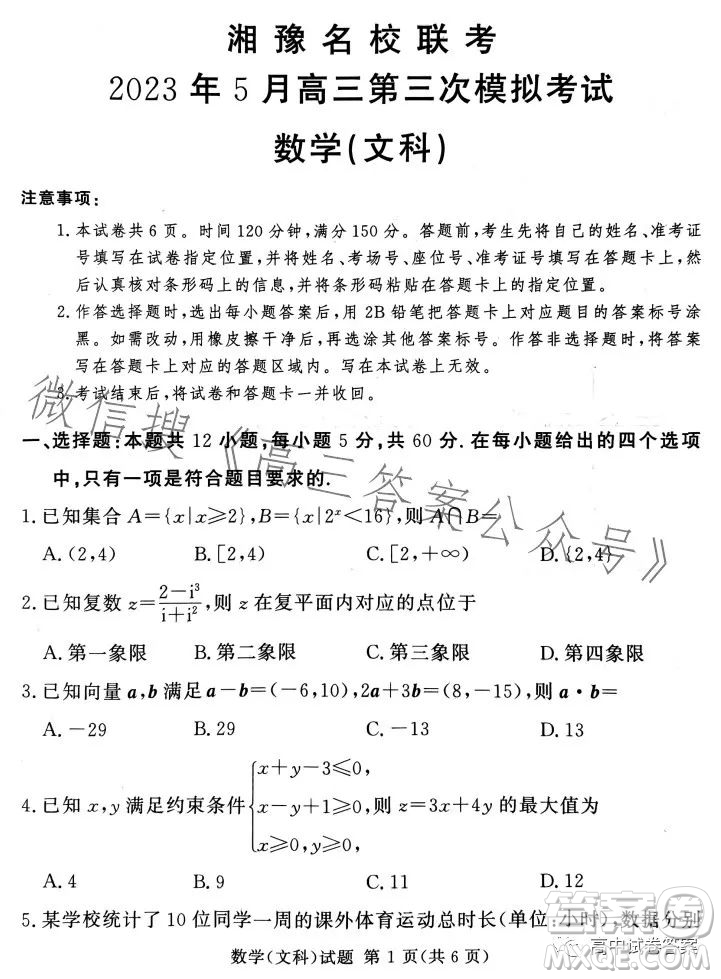 湘豫名校联考
2023年5月高三第三次模拟考试
数学(文科)
注意事项:
1.本试卷共6页。时间120分钟,满分150分。答题前,考生先将自己的姓名、准考证
号填写在试卷指定位置,并将姓名、考场号、座位号、准考证号填写在答题卡上,然
后认真核对条形码上的信息,并将条形码粘贴在答题卡上的指定位置。
2.作答选择题时,选出每小题答案后,用2B铅笔把答题卡上对应题目的答案标号涂
黑。如需改动,用橡皮擦干净后,再选涂其他答案标号。作答非选择题时,将答案
写在答题卡上对应的答题区域内。写在本试卷上无效。
3.考试结束后,将试卷和答题卡一并收回。
一、选择题:本题共12小题,每小题5分,共60分.在每小题给出的四个选项
中,只有一项是符合题目要求的.
1.已知集合A={x|x≥2},B={x|2ˣ<16},则A∩B=
A.(2,4) B.[2,4) C.[2,+∞) D.{2,4}
2.已知复数z=(2-i³)/(i+i²),则z在复平面内对应的点位于
A.第一象限 B.第二象限 C.第三象限 D.第四象限
3.已知向量a,b满足a-b=(-6,10),2a+3b=(8,-15),则a·b=
A.-29 B.29 C.-13 D.13
4.已知x,y满足约束条件{x+y-3≤0, x-y+1≥0, x≥0,y≥0, 则z=3x+4y的最大值为
A.4 B.9 C.11 D.12
5.某学校统计了10位同学一周的课外体育运动总时长(单位:小时),数据分别
数学(文科)试题 第1页(共6页)
微信搜《高三答案公众号》
高中试卷答案
答案圈
MXQE.COM